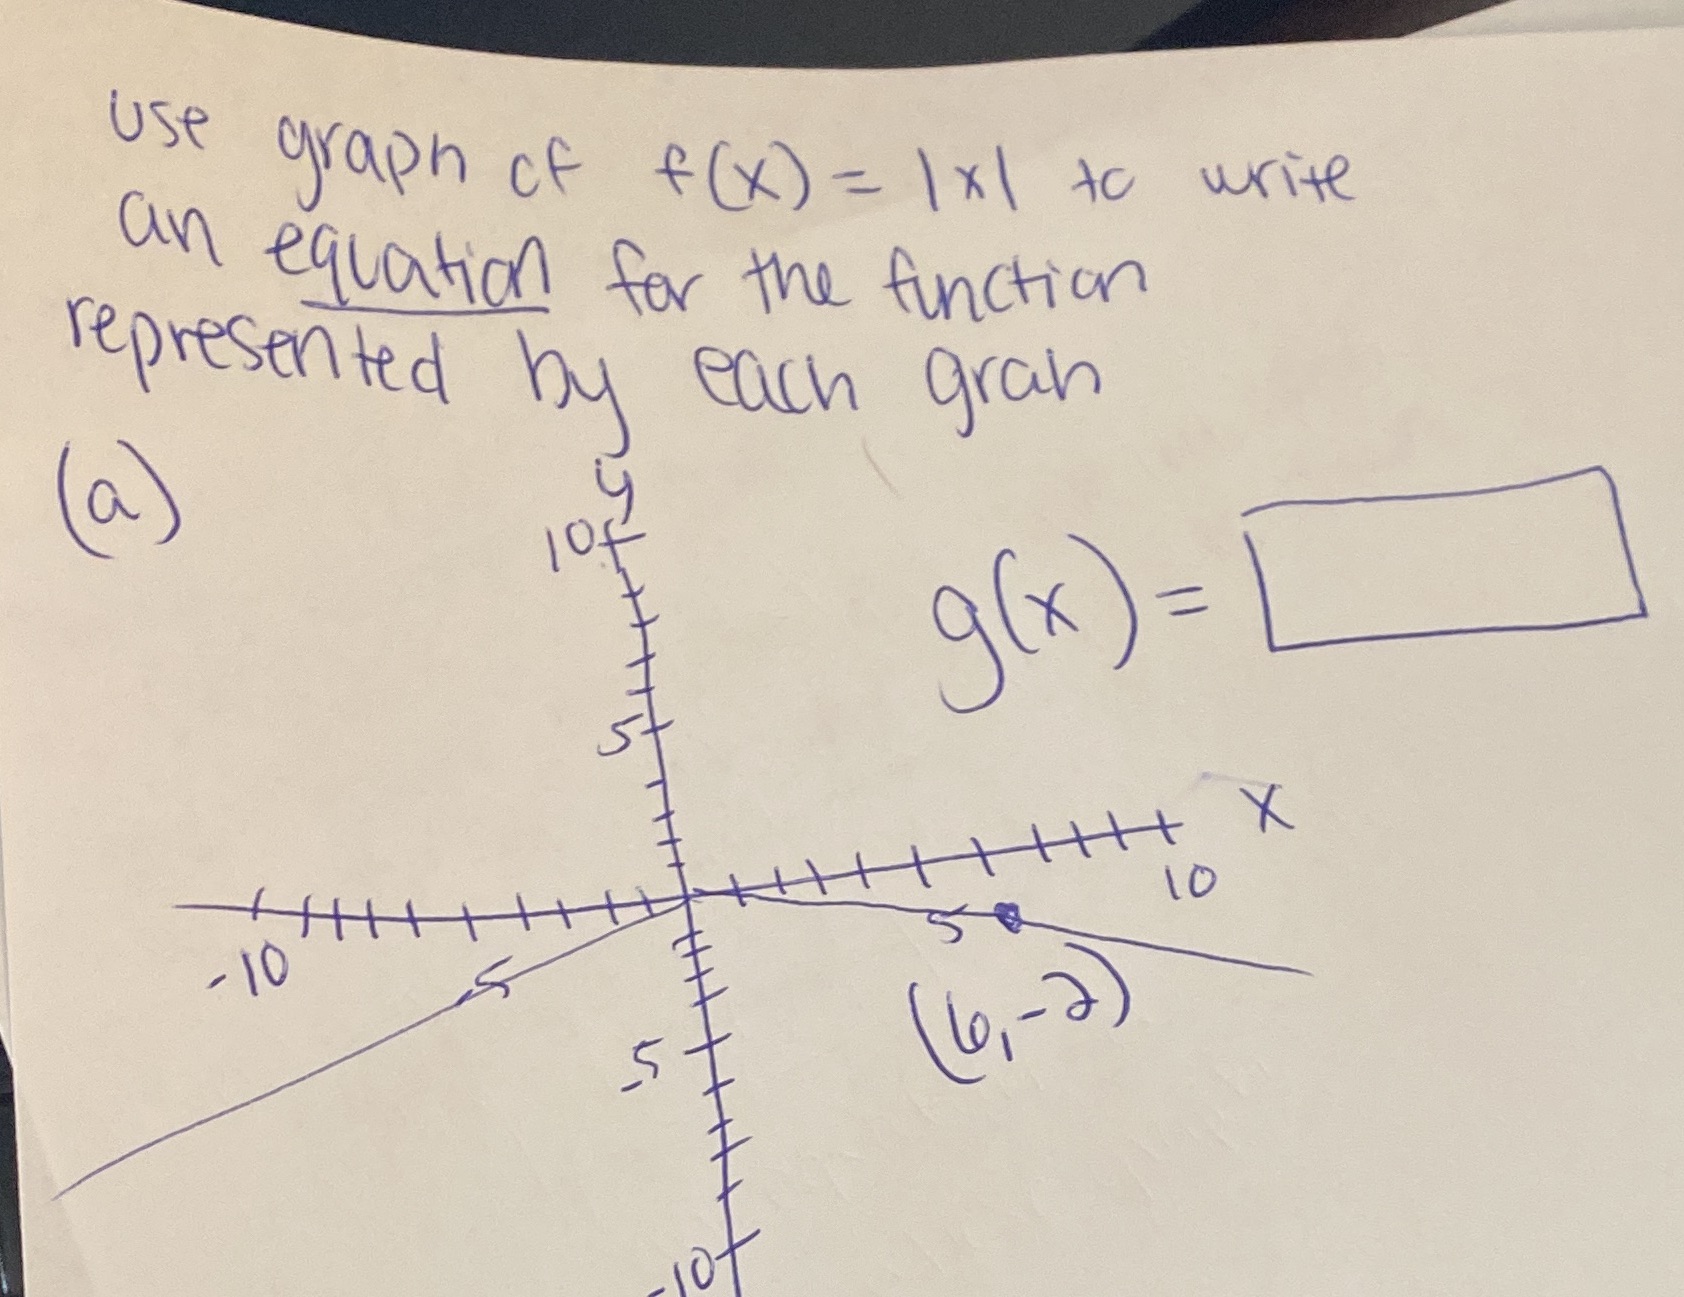 use graph of f(x) = |x| to write
an equation for the function
represented by each grah
(a)
y
10
g(x) =
5
x
10
-10
-5
5
(6,-2)
-5
-10